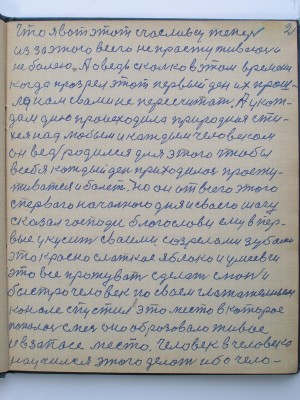 2
Что я вот этот счасливец теперь
из за этого всего не простуживаюсь и
не болею. А ведь сколко в этом времени
когда прозрел этот первый ден их прош-
ло нам с вами не пересчитат. А у каж-
дом дню происходила природная сти-
хея над любым и каждым человеком
он вед родился для этого чтобы
в себя каждый ден приходилос просту-
живатся и болет. Но он от всего этого
с первого началного дня и своего шагу
сказал господи благослови ему в пер-
вые укусит своими созрелами зубами
это красно слаткое яблоко и умеючи
это все прожуват сделат слюной и
быстро человек по своем глатателному
канале спустил это место в которое
попалос смеси оно образовало живое
и в запасе место. Человек в человека
научился этого делат ибо чело-